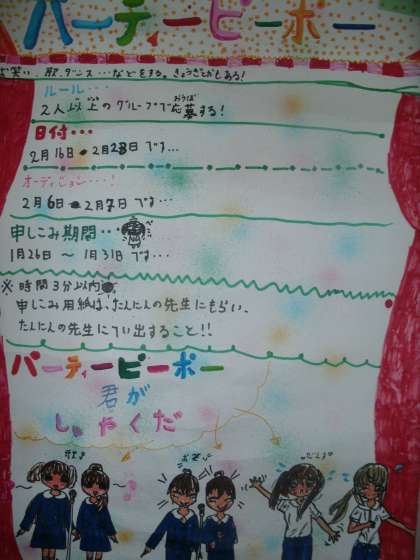 パーティーピーポー
お笑い、歌、ダンス…などをする。きょうぎとかもある!
ルール…
2人以上のグループで応募する!
おうぼ
日付…
2月16日 2月23日です…
オーディション…!
2月6日 2月7日です…
申しこみ期間…
1月26日 ~ 1月31日です…
※時間3分以内
申しこみ用紙は、たんにんの先生にもらい、
たんにんの先生にてい出すること!!
パーティーピーポー
君が
しゅやくだ